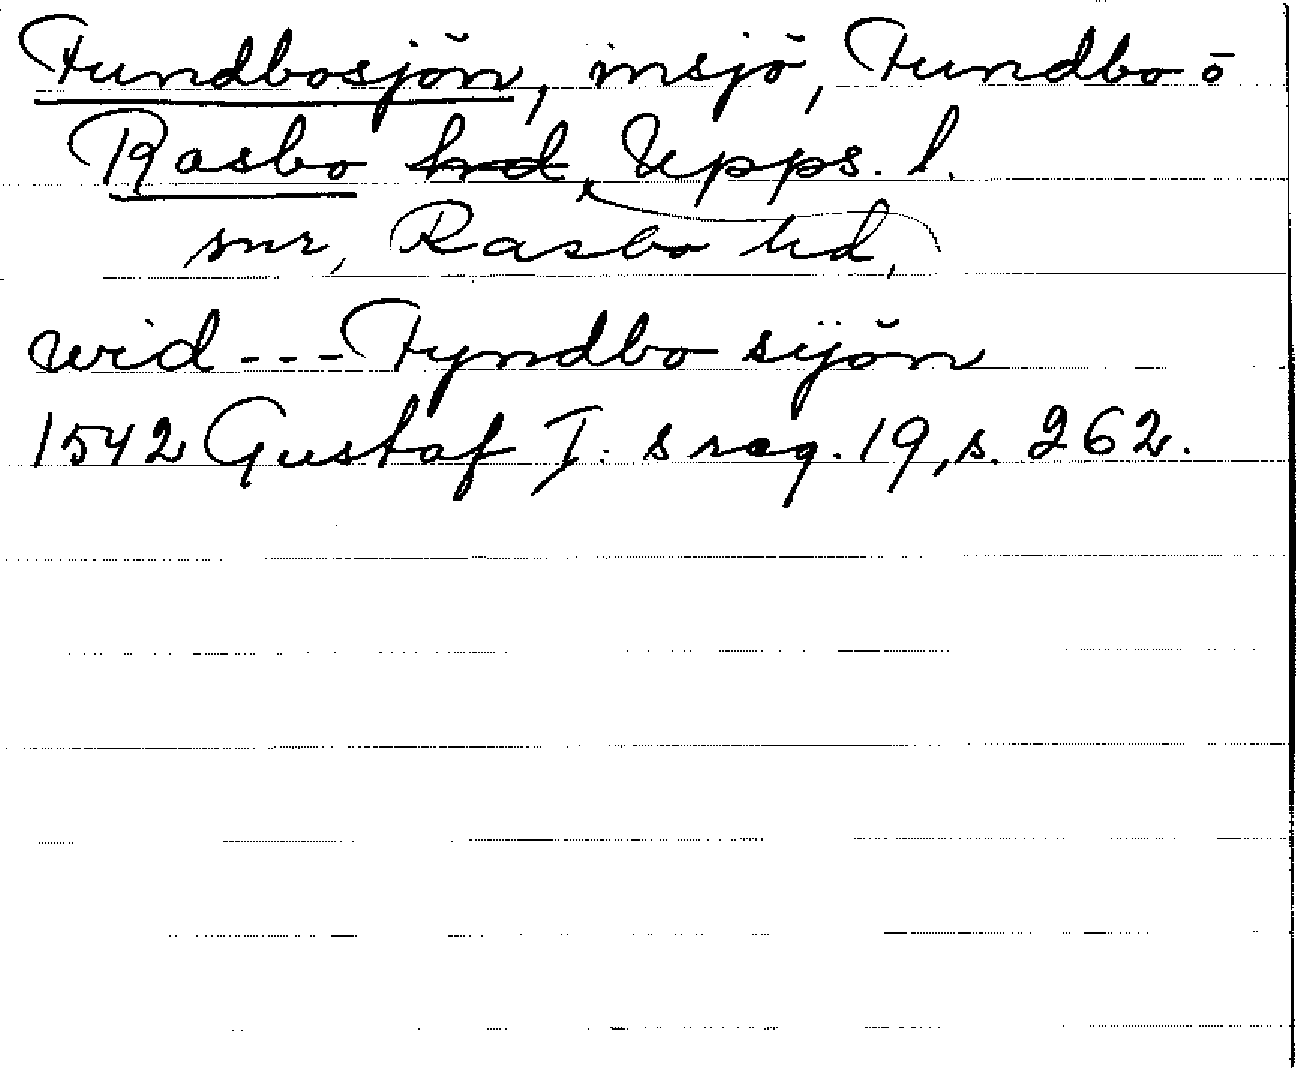 Fundbosjön, insjö, Fundbo ō
Rasbo hd, Upps. l.
snr, Rasbo hd,
wid --- Fyndbo sÿön
1542 Gustaf I: s reg. 19, s. 262.